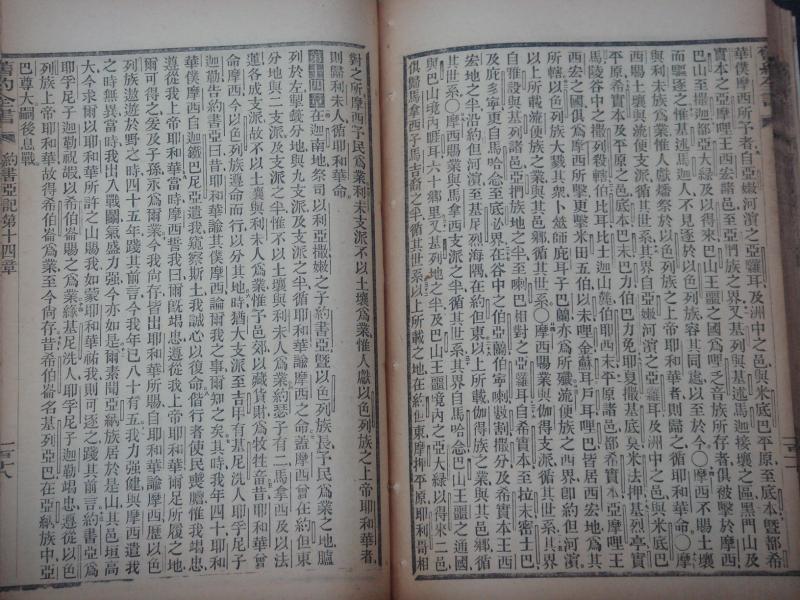 華僕摩西所予者自亞嫩河濱之亞羅耳及洲中之邑與米底巴平原至底本暨都希
實本之亞摩哩王西宏諸邑至亞捫族之界又基列與基述馬迦接壤之區黑門山及
巴山至撒迦都亞大緑及以得來巴山王噩之國爲哩乏音族所存者俱被擊於摩西
而驅逐之惟基述馬迦人不見逐於以色列族容其同處以至於今〇摩西不賜土壤
與利未族惟爲人獻燔祭於以色列族之上帝耶和華者則歸之循耶和華命〇摩
西賜土壤與流便支派循其世系其界自亞嫩河濱之亞羅耳及洲中之邑與米底巴
平原希實本及平原之邑底本巴末巴力伯巴力免耶夏撒基底莫米法押基烈亭實
馬陵谷中之撒列殺轄伯比耳毘斯迦山麓伯耶西末平原諸邑都希實本亞摩哩王
西宏之國俱爲摩西所擊更擊米田五伯以未哩金蘇耳戶耳哩巴皆居西宏地爲其
所轄以色列族大戮其衆卜筮師庇耳子巴蘭亦爲所殲流便族之西界卽約但河濱
以上所載流便族之業與其邑鄉循其世系〇摩西賜業與伽得支派循其世系其界
自雅設與基列諸邑亞捫族地之半至喇巴相對之亞羅耳自希實本至拉末密土巴
及庇多寧更自馬哈念至底必界在谷中之伯亞蘭伯寧喇數割撒分及希實本王西
宏地之半沿約但河濱至基尼烈海隅在約但東以上所載伽得族之業與其邑鄉循
其世系〇摩西賜業與馬拿西支派之半循其世系其界自馬哈念巴山王噩之通國
與巴山境內睚耳六十鄉里又基列地之半及巴山王噩境內之亞大緑以得來二邑
俱歸馬拿西子馬吉裔之半循其世系以上所載之地在約但東摩押平原耶利哥相
對之所摩西予民爲業利未支派不以土壤爲業惟人獻以色列族之上帝耶和華者
則歸利未人循耶和華命
第十四章 在迦南地祭司以利亞撒嫩之子約書亞曁以色列族長予民爲業之地臚
列於左掣籤分地與九支派及支派之半循耶和華諭摩西之命蓋摩西曾在約但東
分地與二支派及支派之半惟不以土壤與利未人爲業約瑟子有二馬拿西及以法
蓮各成支派故不以土壤與利未人爲業惟予邑郊以藏貨財爲牧牲畜昔耶和華
命摩西今以色列族遵命而行以分其地時猶大支派至吉甲有基尼洗人耶孚尼子
迦勒告約書亞曰昔耶和華諭其僕摩西論爾我之事爾知之矣其時我年四十耶和
華僕摩西自迦鐵巴尼亞遣我窺察斯土我誠心以復命偕行者使民喪膽惟我竭忠
遵從我上帝耶和華當時摩西誓我曰爾旣竭忠遵從我上帝耶和華爾足所履之地
爾可得之爰及子孫永爲爾業今我尚存皆出耶和華所賜自耶和華諭摩西歷以色
列族遨遊於野之時四十五年踐其前言今我年已八十有五我力強健與摩西遣我
之時無異當時我出入戰鬬氣盛力強今亦如是爾素聞亞納族居於是山其邑垣高
大今求爾以耶和華所許之山賜我如蒙耶和華祐我則可逐之踐其前言約書亞爲
耶孚尼子迦勒祝嘏以希伯崙賜之爲業緣基尼洗人耶孚尼子迦勒竭忠遵從以色
列族上帝耶和華故得希伯崙爲業至今尚存昔希伯崙名基列亞巴在亞納族中亞
巴尊大嗣後息戰
舊約全書 約書亞記第十四章